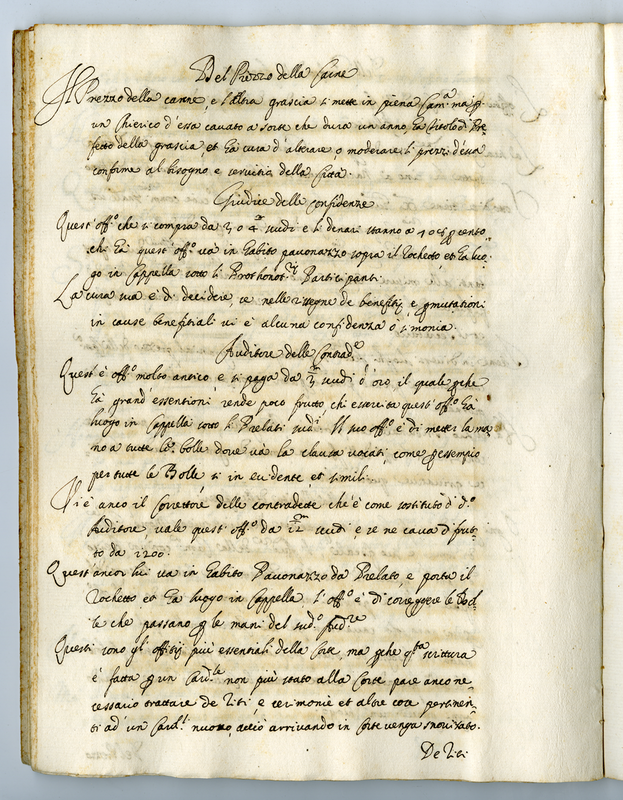 Del Prezzo della Carne
Il Prezzo della carne, e l'altra grascia si mette in piena Camᵃ ma p
un Chierico d'essa cavato a sorte che dura un anno, ha titolo di Pre
fetto della grascia, et ha cura d'alterare o moderare li prezzi d'essa
conforme al bisogno e servitio della Città
Giudice delle confidenze
Quest'offᵒ che si compra da 3 o 4 ᵐ scudi e li denari stanno a 40 p cento
chi ha quest'offᵒ va in habito pavonazzo sopra il Rochetto et ha luo,
go in Cappella sotto li Prothonotʳⁱ Partitipanti.
La cura sua è di decidere, se nelle rissegne de benefitij e pmutationi
in cause benefitiali vi è alcuna confidenza o simonia.
Auditore delle Contradᵉ
Quest'è offᵒ molto antico e si paga da ᵐ/12 scudi d'oro il quale pche
ha grand'essentioni rende poco frutto, chi essercita quest'offᵒ ha
luogo in Cappella sotto li Prelati sudⁱ. Il suo offᵒ è di metter la ma,
no a tutte le bolle dove va la clausa vocati, come p essempio
per tutte le Bolle si in evidente, et simili.
Vi è anco il Correttore delle contradette che è come sostituto di dᵒ
Auditore, vale quest'offᵒ da ᵐ/12 scudi, e se ne cava d frut,
to da 1200.
Quest'ancor lui va in habito Pavonazzo da Prelato, e porta il
Rochetto et ha luogo in Cappella. L'offᵒ è di correggere le Bol,
le che passano p le mani del sudᵒ Audʳᵉ
Questi sono gli offitij più essentiali della Corte, ma pche qstᵃ scrittura
è fatta p un Cardˡᵉ non più stato alla Corte pare anco ne,
cessario trattare de Riti, e cerimonie et altre cose pertinen,
ti ad un Cardˡ nuovo, acciò arrivando in Corte venga
De Riti